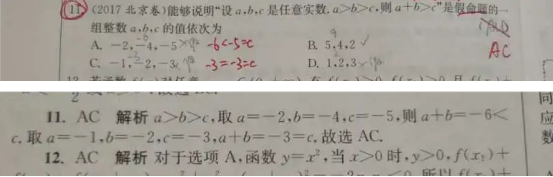 11 (2017 北京卷)能够说明“设a,b,c是任意实数.a>b>c,则a+b>c”是假命题的一
组整数a,b,c的值依次为
A. -2,-4,-5 -6<-5=c B. 5,4,2 AC
C. -1,-2,-3 -3=-3=c D. 1,2,3
11. AC 解析 a>b>c,取a=-2,b=-4,c=-5,则a+b=-6<
c.取a=-1,b=-2,c=-3,a+b=-3=c.故选AC.
12. AC 解析 对于选项A,函数y=x²,当x>0时,y>0,f(x₁)+
同
应
数